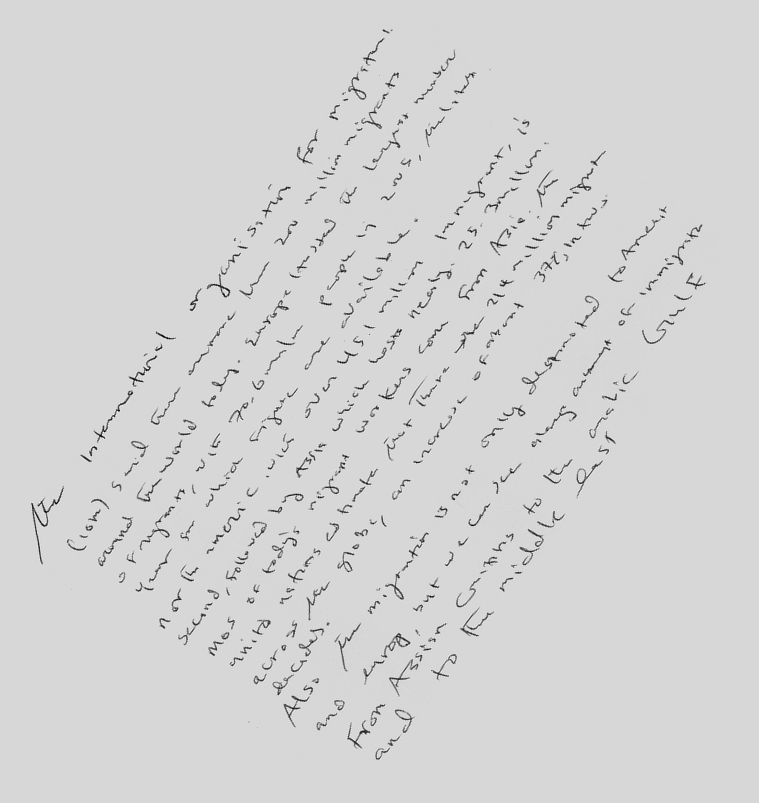 The International organisation for migration
(iom) said there are more than 200 million migrants
around the world today. Europe hosted the largest number
of migrants, with 70.6 million people in 2005, the latest
year for which figure are available.
north americ, with over 45.1 million immigrants, is
second, followed by Assia which hosts nearly 25.3 million.
mos of today's migrant workers come from Asia. the
united nations estimate that there are 214 million migrant
across the globe, an increase of about 37% in two
decades.
Also the migration is not only destinated to Americ
and europ, but we can see along amount of immigrats
From Assian to the arabic Gulf
and to the middle east